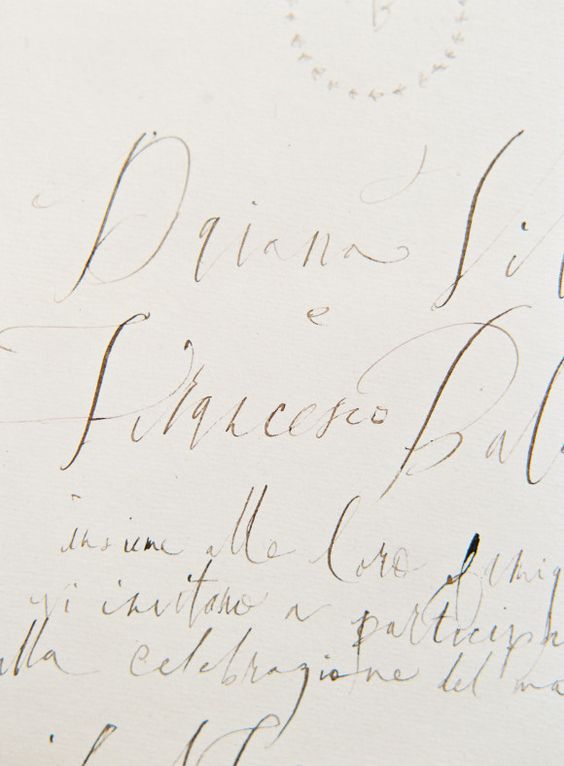 Daiana Sil
e
Francesco Bal
insieme alle loro famig
vi invitano a particip
alla celebrazione del ma